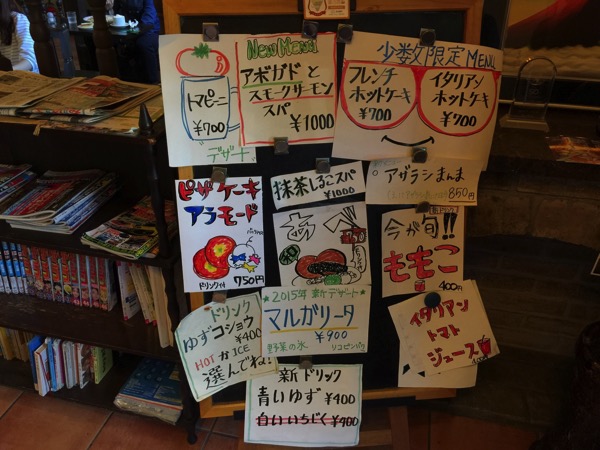 トマピーニ
¥700
デザート
New Menu
アボガドと
スモークサーモン
スパ
¥1000
少数限定 MENU
フレンチ
ホットケーキ
¥700
イタリアン
ホットケーキ
¥700
ピザケーキ
アラモード
ドリンク付
750円
抹茶しるこスパ
¥1000
アザラシまんま
850円
今が旬!!
ももこ
400円
ドリンク
ゆずコショウ
¥400
HOT か ICE
選んでね!
★2015年 新デザート★
マルガリータ
¥900
野菜の氷
リコピンパワ
イタリアン
トマト
ジュース
新ドリンク
青いゆず ¥400
白いいちじく ¥400